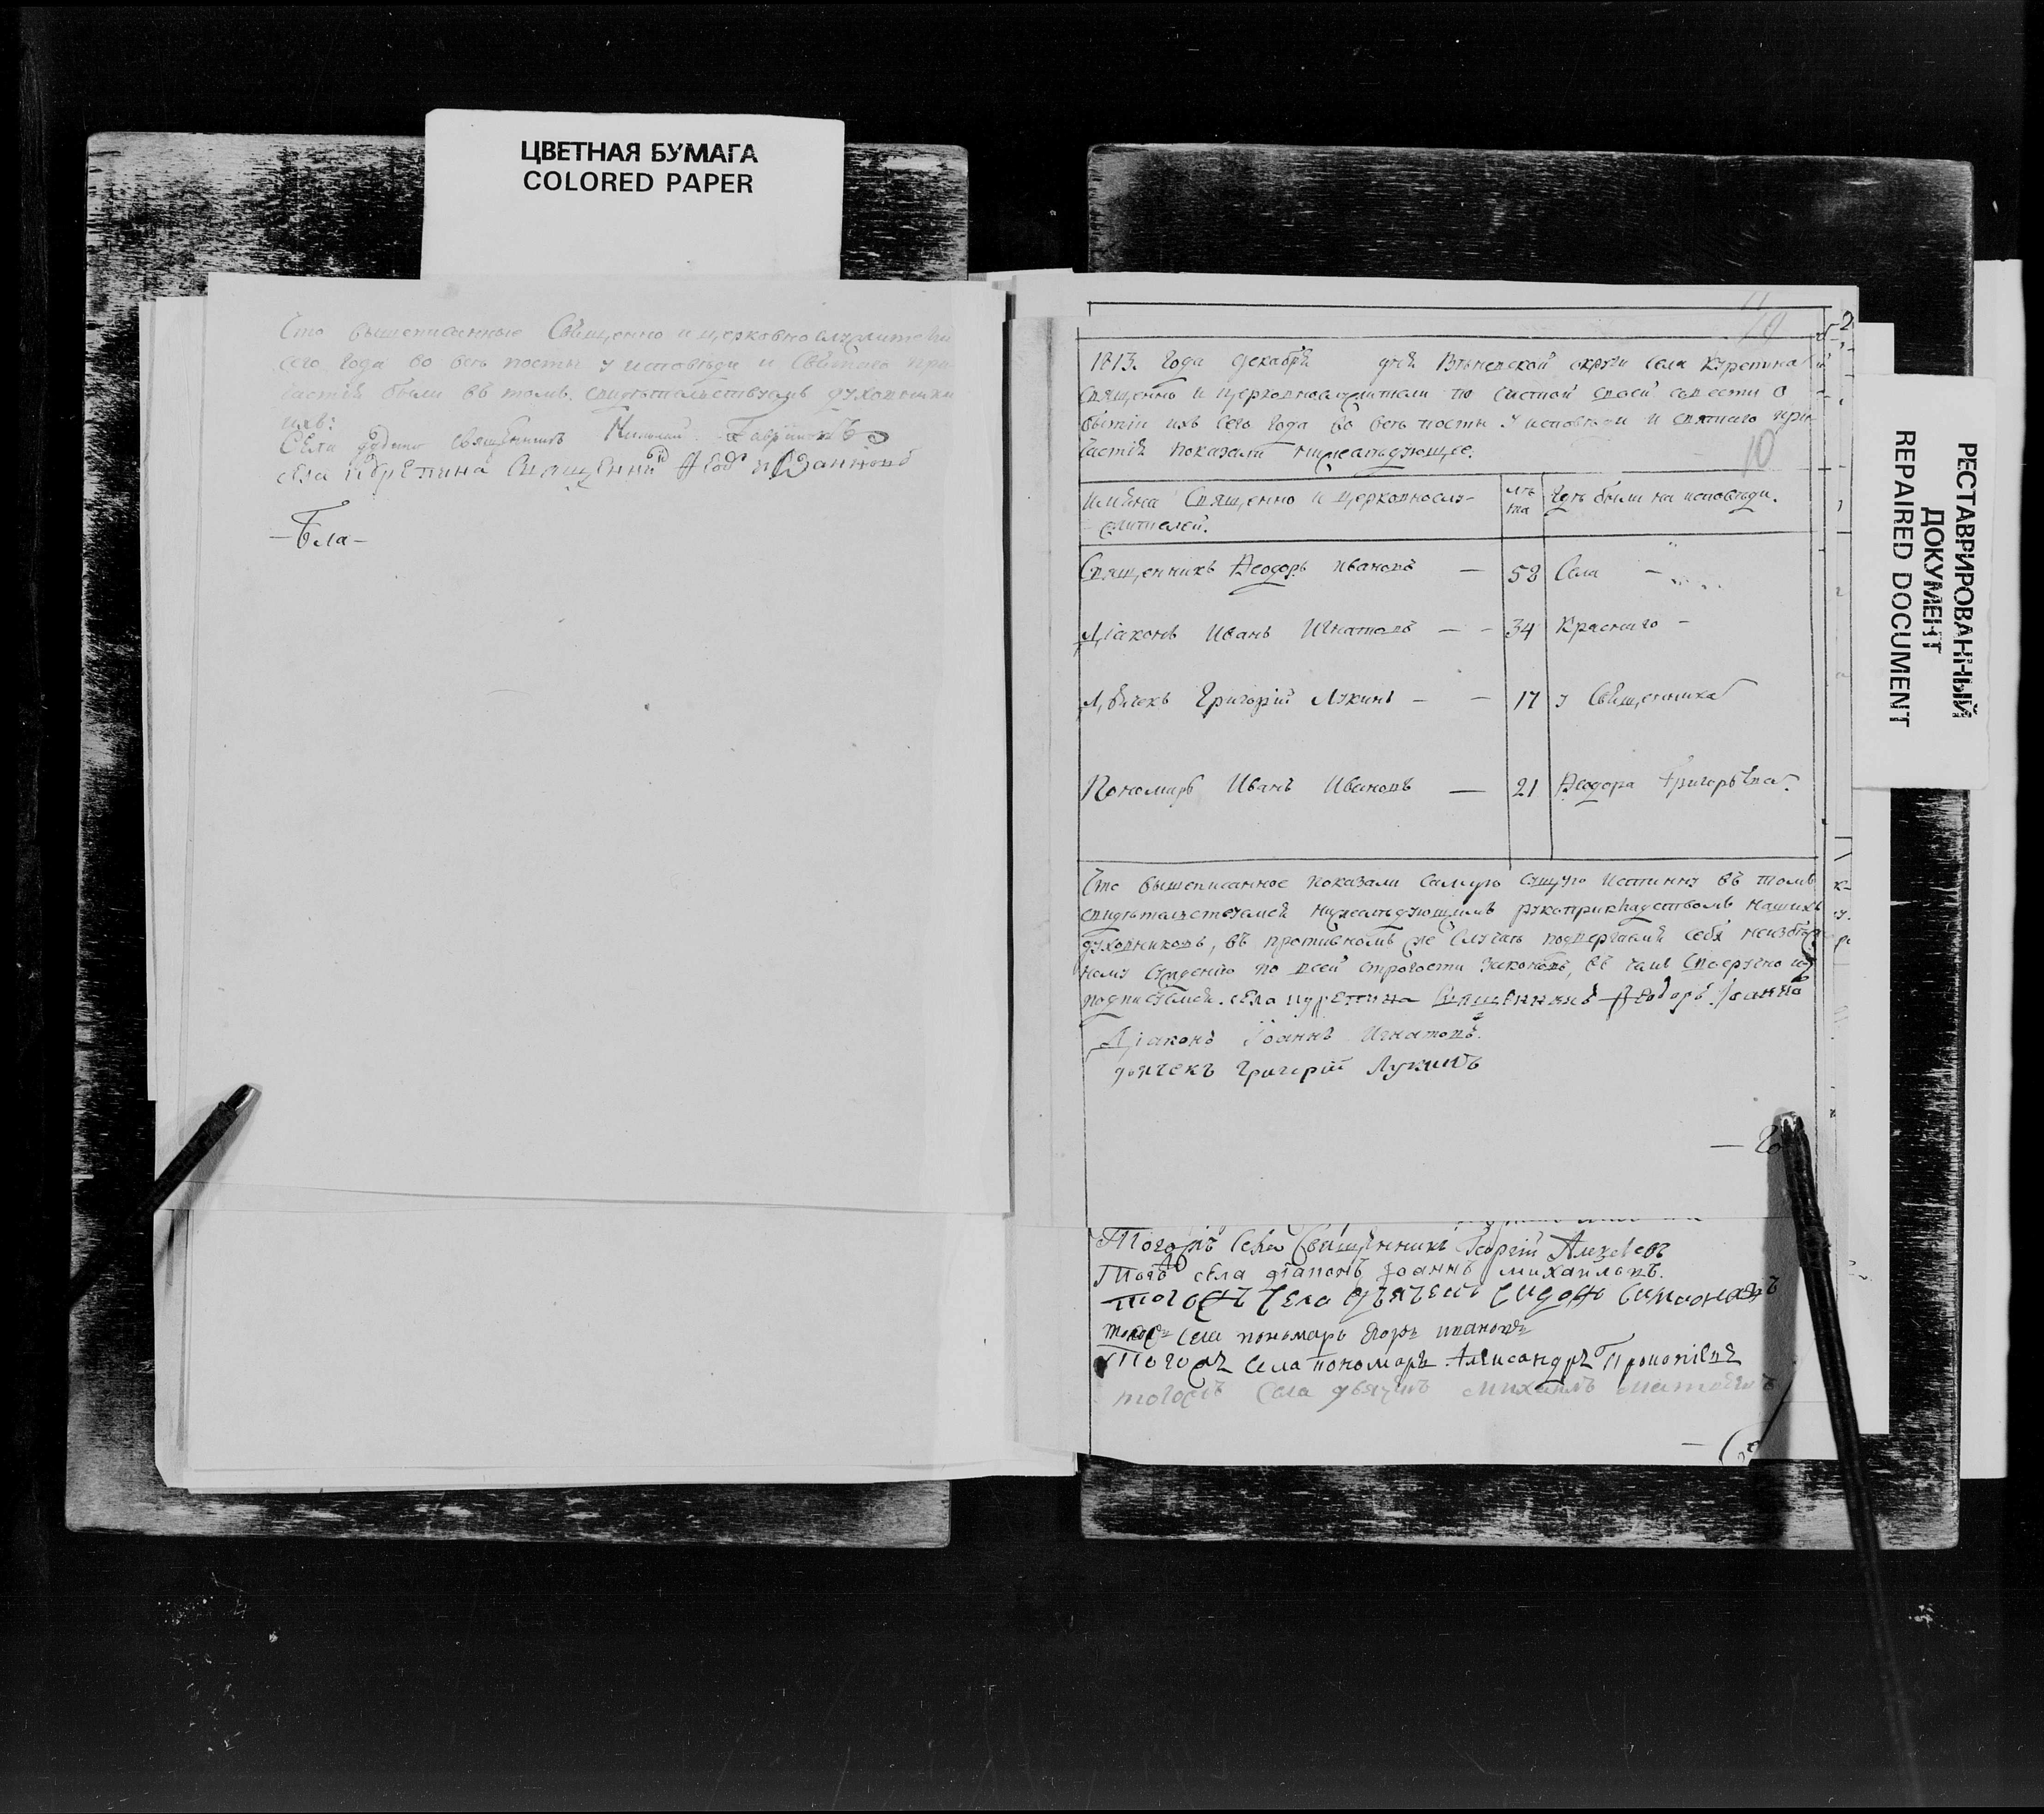 ЦВЕТНАЯ БУМАГА
COLORED PAPER
Что вышеписанные Священно и церковнослужители
сего года во всѣ посты у исповѣди и Святаго при
частія были въ томъ свидѣтельствуемъ духовники
ихъ:
Села священникъ
села Священникъ Иоанновъ
1813. года декабря дня округи села Куретина
Священно и церковнослужители по чистой своей совести о
бытіи ихъ сего года во всѣ посты у исповѣди и святаго при-
частія показали нижеслѣдующее.
10
Имѣна Священно и церковнослу-
жителей.
лѣ
та
Гдѣ были на исповѣди.
Священникъ Ѳеодоръ Ивановъ — 58 Села —
Діаконъ Иванъ Игнатовъ — - 34 Краснаго -
Дьячекъ Григорій Лукинъ — - 17 у Священника
Пономарь Иванъ Ивановъ — 21 Ѳеодора Григорьева.
Что вышеписанное показали самую сущую истинну въ томъ
свидѣтельствуемся нижеслѣдующимъ рукоприкладствомъ нашихъ
духовниковъ, въ противномъ же случаѣ подвергаемъ себя неизбѣж
ному сужденію по всей строгости законовъ, въ чемъ своеручно и
подписуемся. села Куретина Священникъ Ѳеодоръ Іоанновъ
Діаконъ Іоаннъ Игнатовъ.
дьячекъ Григорій Лукинъ
Тогожъ села Священникъ Георгій Алексѣевъ
Тогожъ села діаконъ Іоаннъ Михаиловъ.
тогожъ села дьячекъ
тогожъ села пономарь Ивановъ
Тогожъ села пономарь Александръ Прокопіевъ
тогожъ села дьячекъ Михаилъ
РЕСТАВРИРОВАННЫЙ
ДОКУМЕНТ
REPAIRED DOCUMENT